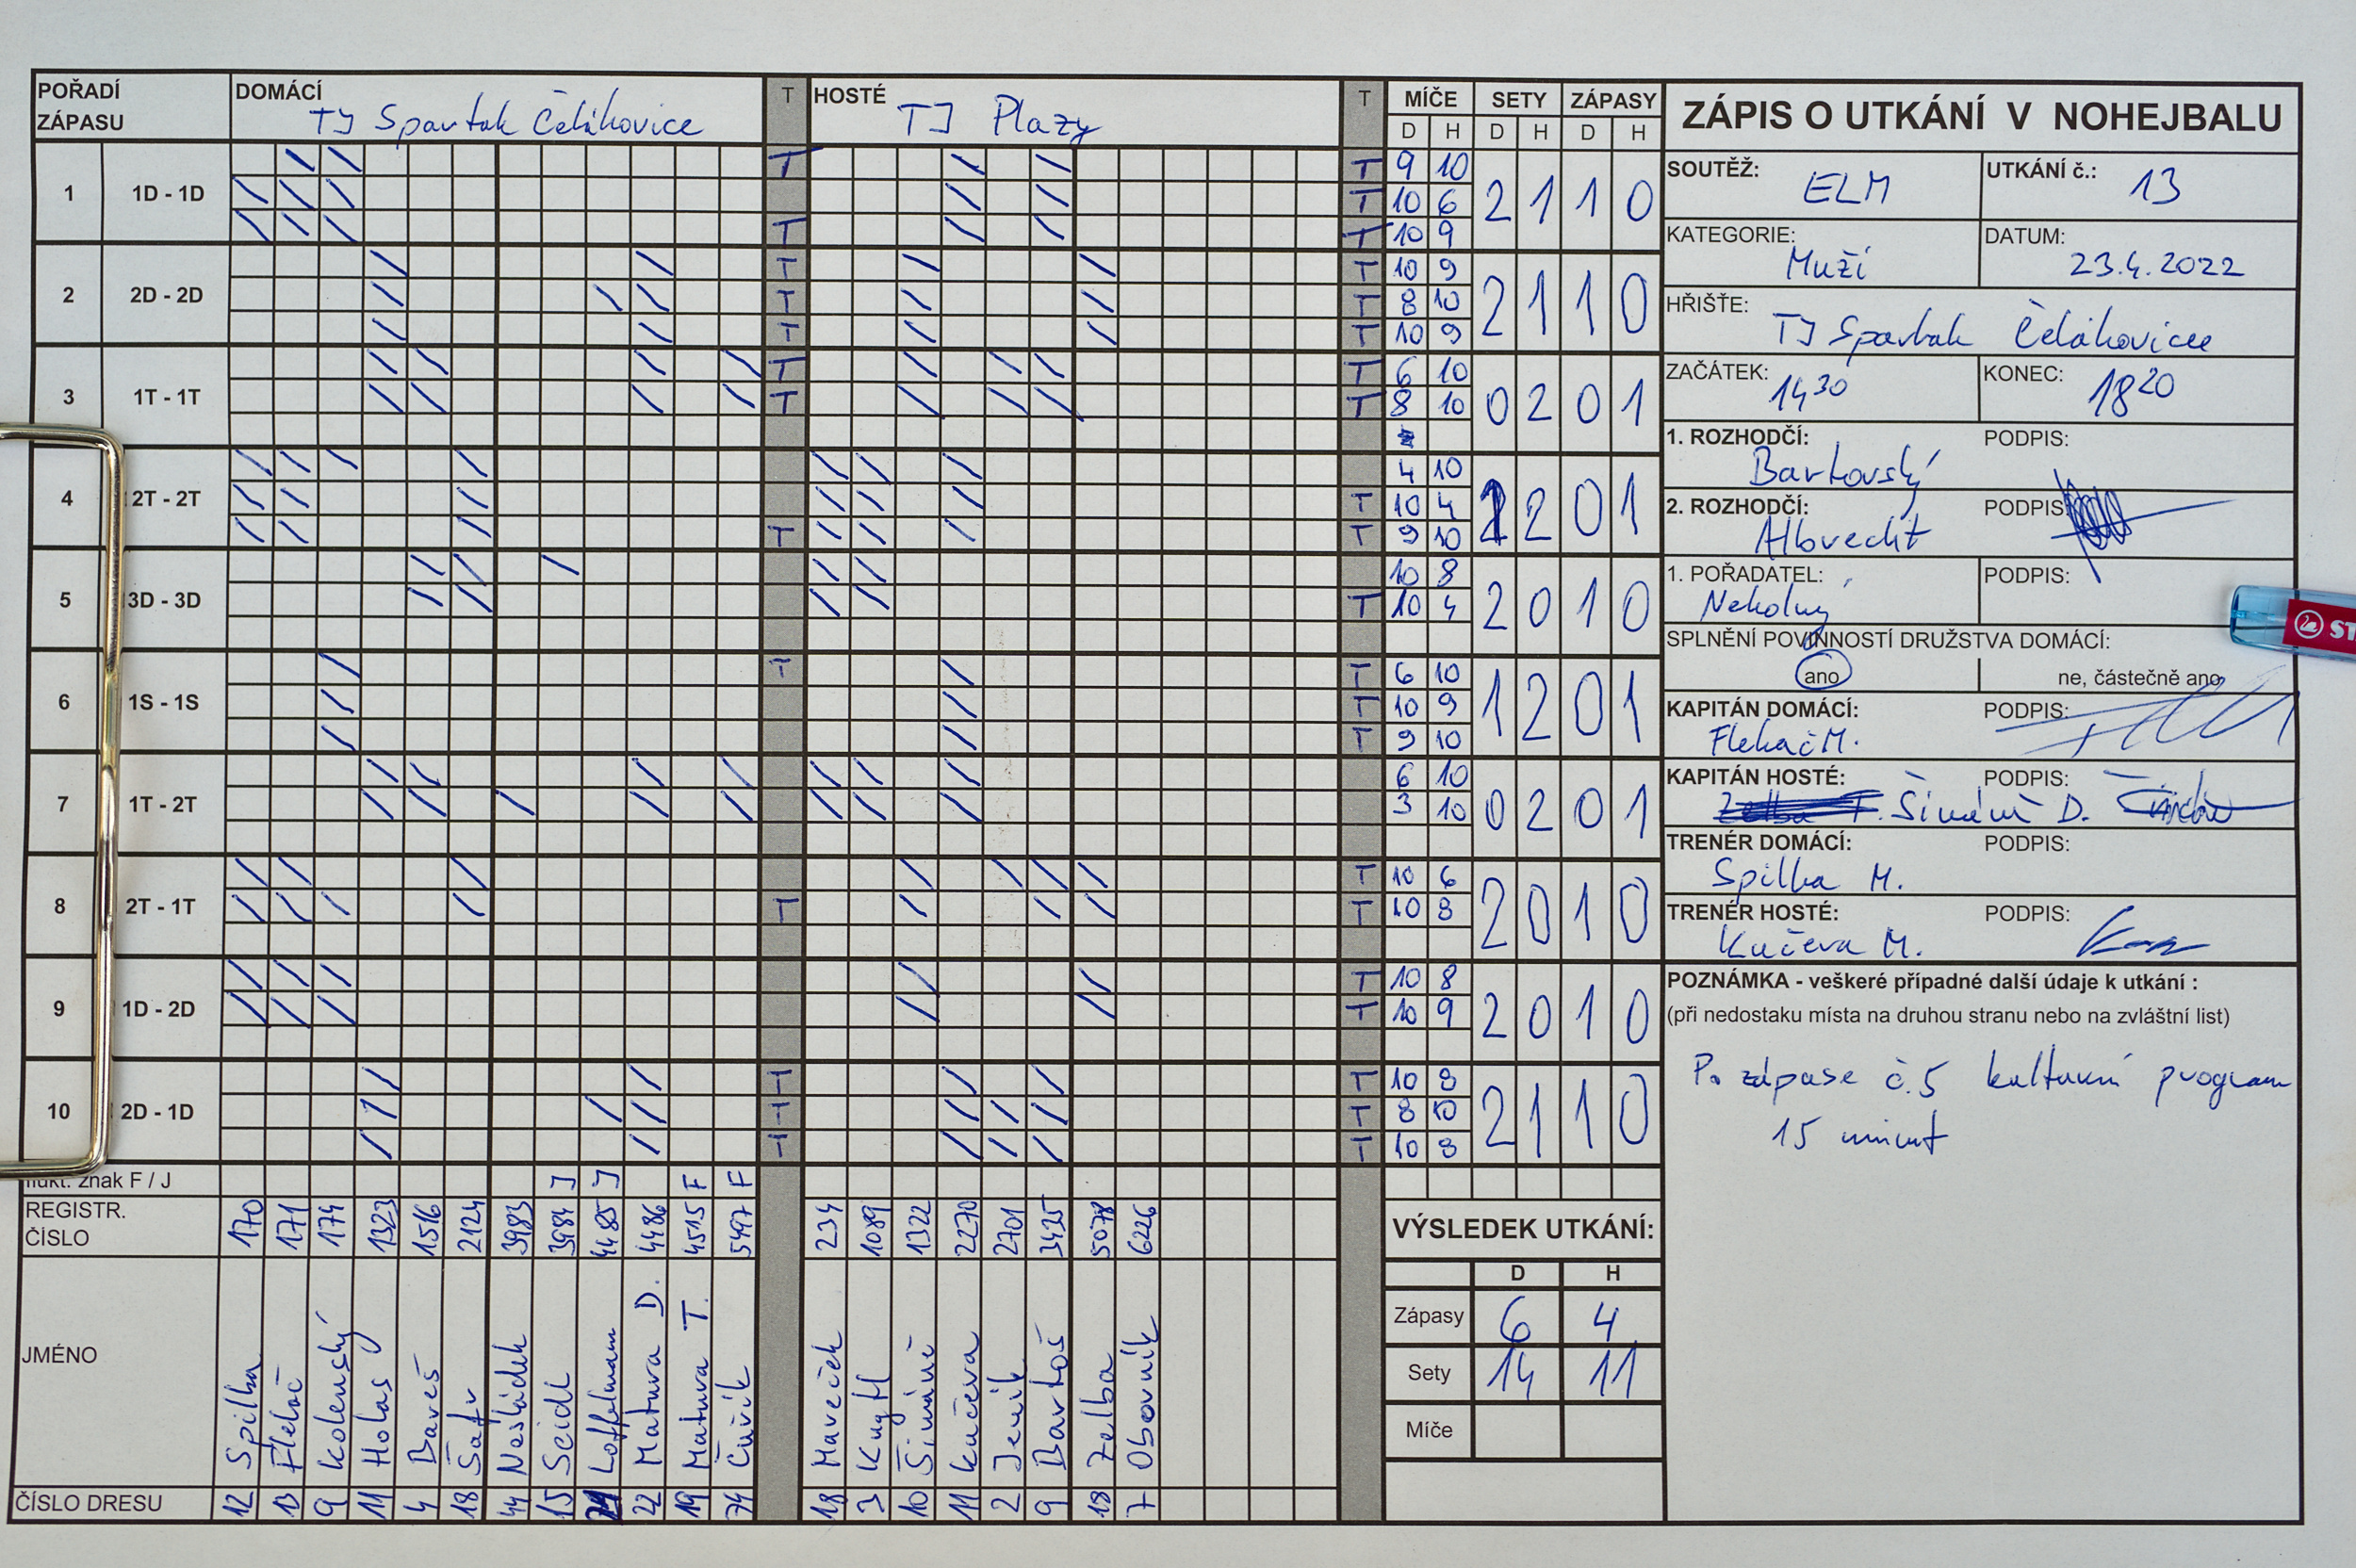 POŘADÍ ZÁPASU
DOMÁCÍ TJ Spartak Čelákovice T
HOSTÉ TJ Plazy T
MÍČE SETY ZÁPASY
D H D H D H
1 1D - 1D T T 9 10 2 1 1 0
T 10 6
T T 10 9
2 2D - 2D T T 10 9 2 1 1 0
T T 8 10
T T 10 9
3 1T - 1T T T 6 10 0 2 0 1
T T 8 10
4 2T - 2T 4 10 1 2 0 1
T 10 4
T T 9 10
5 3D - 3D 10 8 2 0 1 0
T 10 4
6 1S - 1S T T 6 10 1 2 0 1
T 10 9
T 9 10
7 1T - 2T 6 10 0 2 0 1
3 10
8 2T - 1T T 10 6 2 0 1 0
T T 10 8
9 1D - 2D T 10 8 2 0 1 0
T 10 9
10 2D - 1D T T 10 8 2 1 1 0
T T 8 10
T T 10 8
znak F / J J J F F
REGISTR. ČÍSLO 170 171 174 1323 1516 2124 3983 3984 4485 4486 4515 5497 234 1089 1322 2270 2701 3425 5078 6226
JMÉNO Spilka Flekač Kolenský Holas Bareš Šafr Nesládek Seidl Loffelmann Matura D. Matura T. Čuřík Mareček Knytl Šimůně Kučera Jeník Bartoš Zelba Obšovník
ČÍSLO DRESU 12 13 9 11 4 18 44 15 22 19 74 18 3 10 11 2 9 18 7
VÝSLEDEK UTKÁNÍ:
D H
Zápasy 6 4
Sety 14 11
Míče
ZÁPIS O UTKÁNÍ V NOHEJBALU
SOUTĚŽ: ELM UTKÁNÍ č.: 13
KATEGORIE: Muži DATUM: 23.4.2022
HŘIŠTE: TJ Spartak Čelákovice
ZAČÁTEK: 14 30 KONEC: 18 20
1. ROZHODČÍ: Bartovský PODPIS:
2. ROZHODČÍ: Albrecht PODPIS:
1. POŘADATEL: Nekolný PODPIS:
SPLNĚNÍ POVINNOSTÍ DRUŽSTVA DOMÁCÍ:
ano ne, částečně ano
KAPITÁN DOMÁCÍ: Flekač M. PODPIS:
KAPITÁN HOSTÉ: Šimůně D. PODPIS:
TRENÉR DOMÁCÍ: Spilka M. PODPIS:
TRENÉR HOSTÉ: Kučera M. PODPIS:
POZNÁMKA - veškeré případné další údaje k utkání :
(při nedostaku místa na druhou stranu nebo na zvláštní list)
Po zápase č.5 kulturní program
15 minut
ST